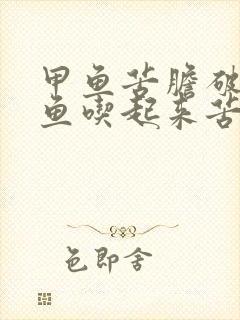 甲鱼苦膽破
鱼喫起来苦
色即舍